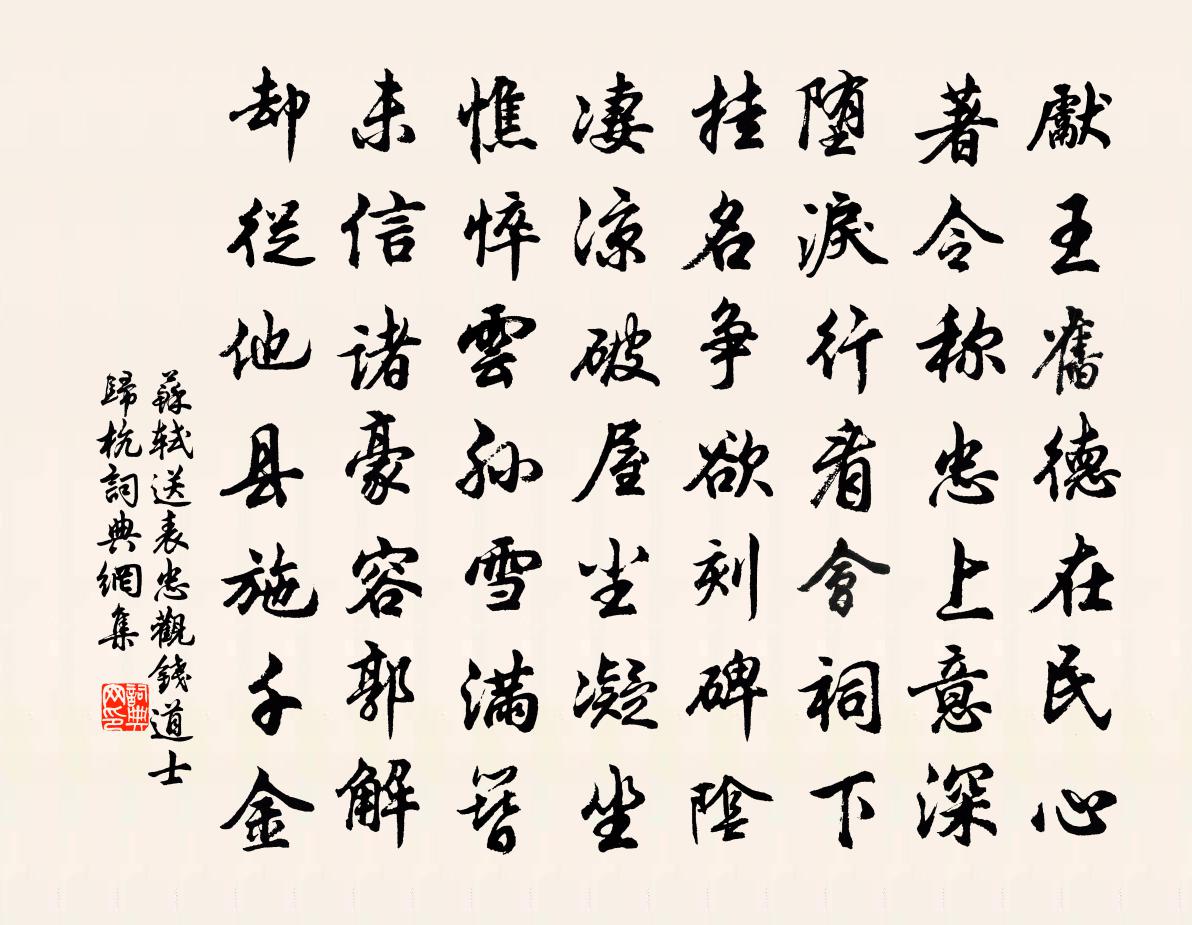 獻王舊德在民心
著令称忠上意深
堕淚行看會祠下
挂名争欲刻碑陰
凄涼破屋尘凝坐
憔悴雲孙雪满簪
未信诸豪容郭解
却從他县施千金
蘇軾送表忠觀錢道士
歸杭詞典網集
詞典网印